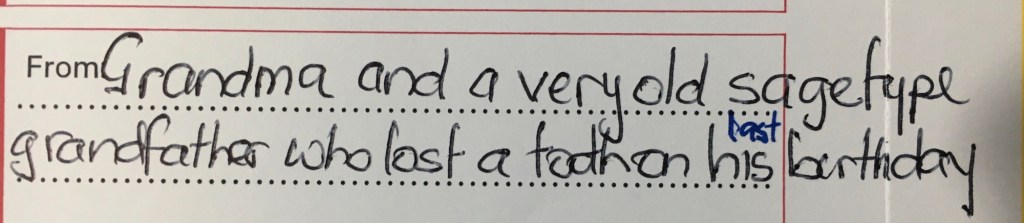 From Grandma and a very old sage type
grandfather who lost a tooth on his last birthday